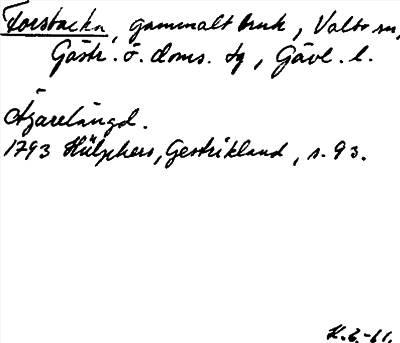 Forsbacka, gammalt bruk, Valbo sn,
Gästr. ö. doms. tg, Gävl. l.
Ägarelängd.
1793 Hülphers, Gestrikland, s. 93.
K.G.-61.